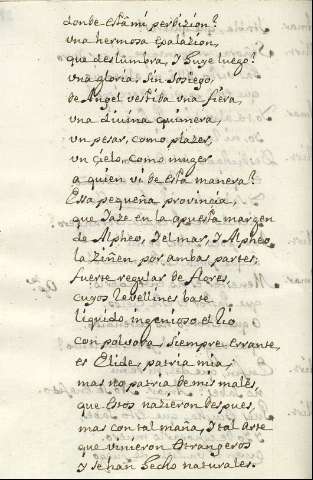 donde está mi perdizion?
vna hermosa exalazion,
que deslumbra, y huye luego?
vna gloria, sin sosiego,
de Angel vestida vna fiera,
vna diuina quimera,
vn pesar, como plazer,
vn çielo, como muger
a quien vi de esta manera?
Essa pequeña prouincia,
que Yaze en la opuesta margen
de Alpheo, y el mar, y Alpheo
la ziñen por ambas partes;
fuerte regular de flores
cuyos Revellines bate
liquido, ingenioso el Rio
con poluora, siempre errante,
es Elide, patria mia;
mas no patria de mis males,
que estos nazieron despues,
mas con tal maña, y tal Arte
que vinieron estrangeros
y se han hecho naturales.